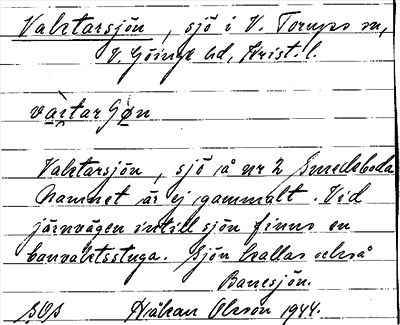 Vaktarsjön, sjö i V. Torups sn,
V. Göinge hd, Krist. l.
Vaktarsjön, sjö å nr 2 Smedsboda
Namnet är ej gammalt. Vid
järnvägen intill sjön finns en
banvaktsstuga. Sjön kallas också
Banesjön.
Håkan Olsson 1944.